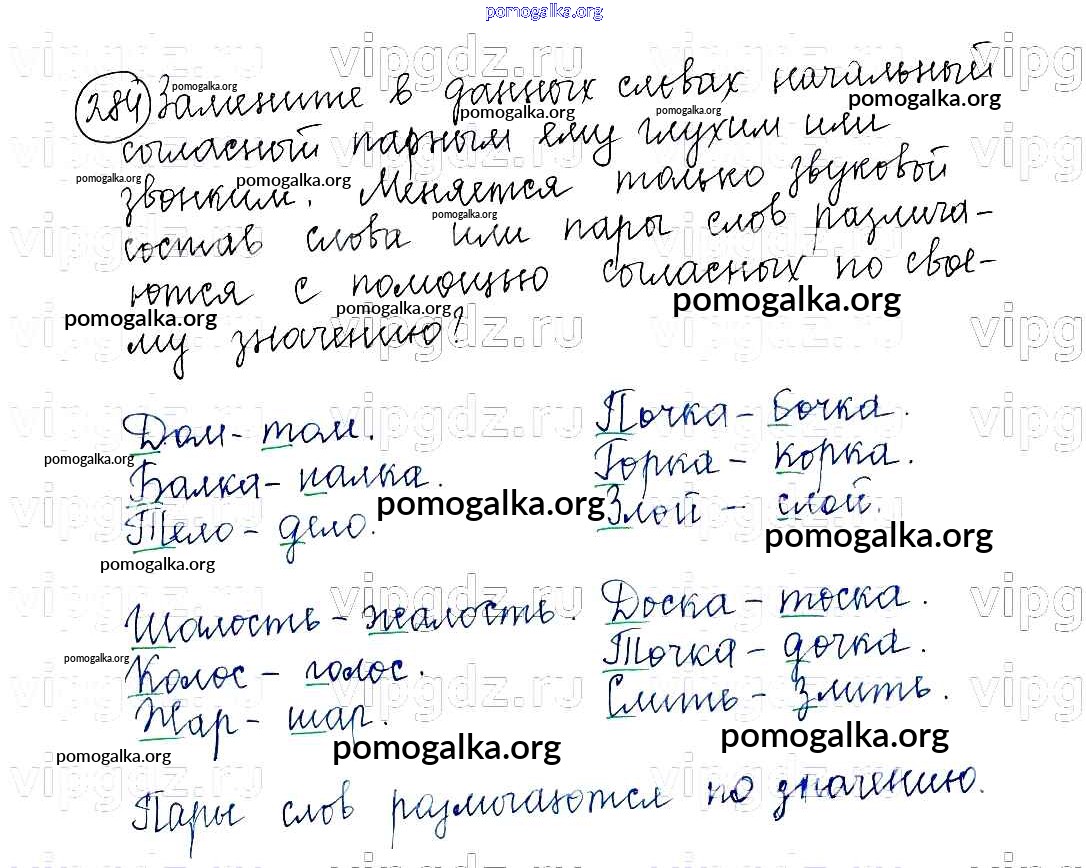 pomogalka.org
284 Замените в данных словах начальный
согласный парным ему глухим или
звонким. Меняется только звуковой
состав слова или пары слов различа-
ются с помощью согласных по свое-
му значению?
Дом - том. Почка - бочка.
Балка - палка. Горка - корка.
Тело - дело. Злой - слой.
Шалость - жалость. Доска - тоска.
Колос - голос. Точка - дочка.
Жар - шар. Слить - злить.
Пары слов различаются по значению.
vipgdz.ru
pomogalka.org